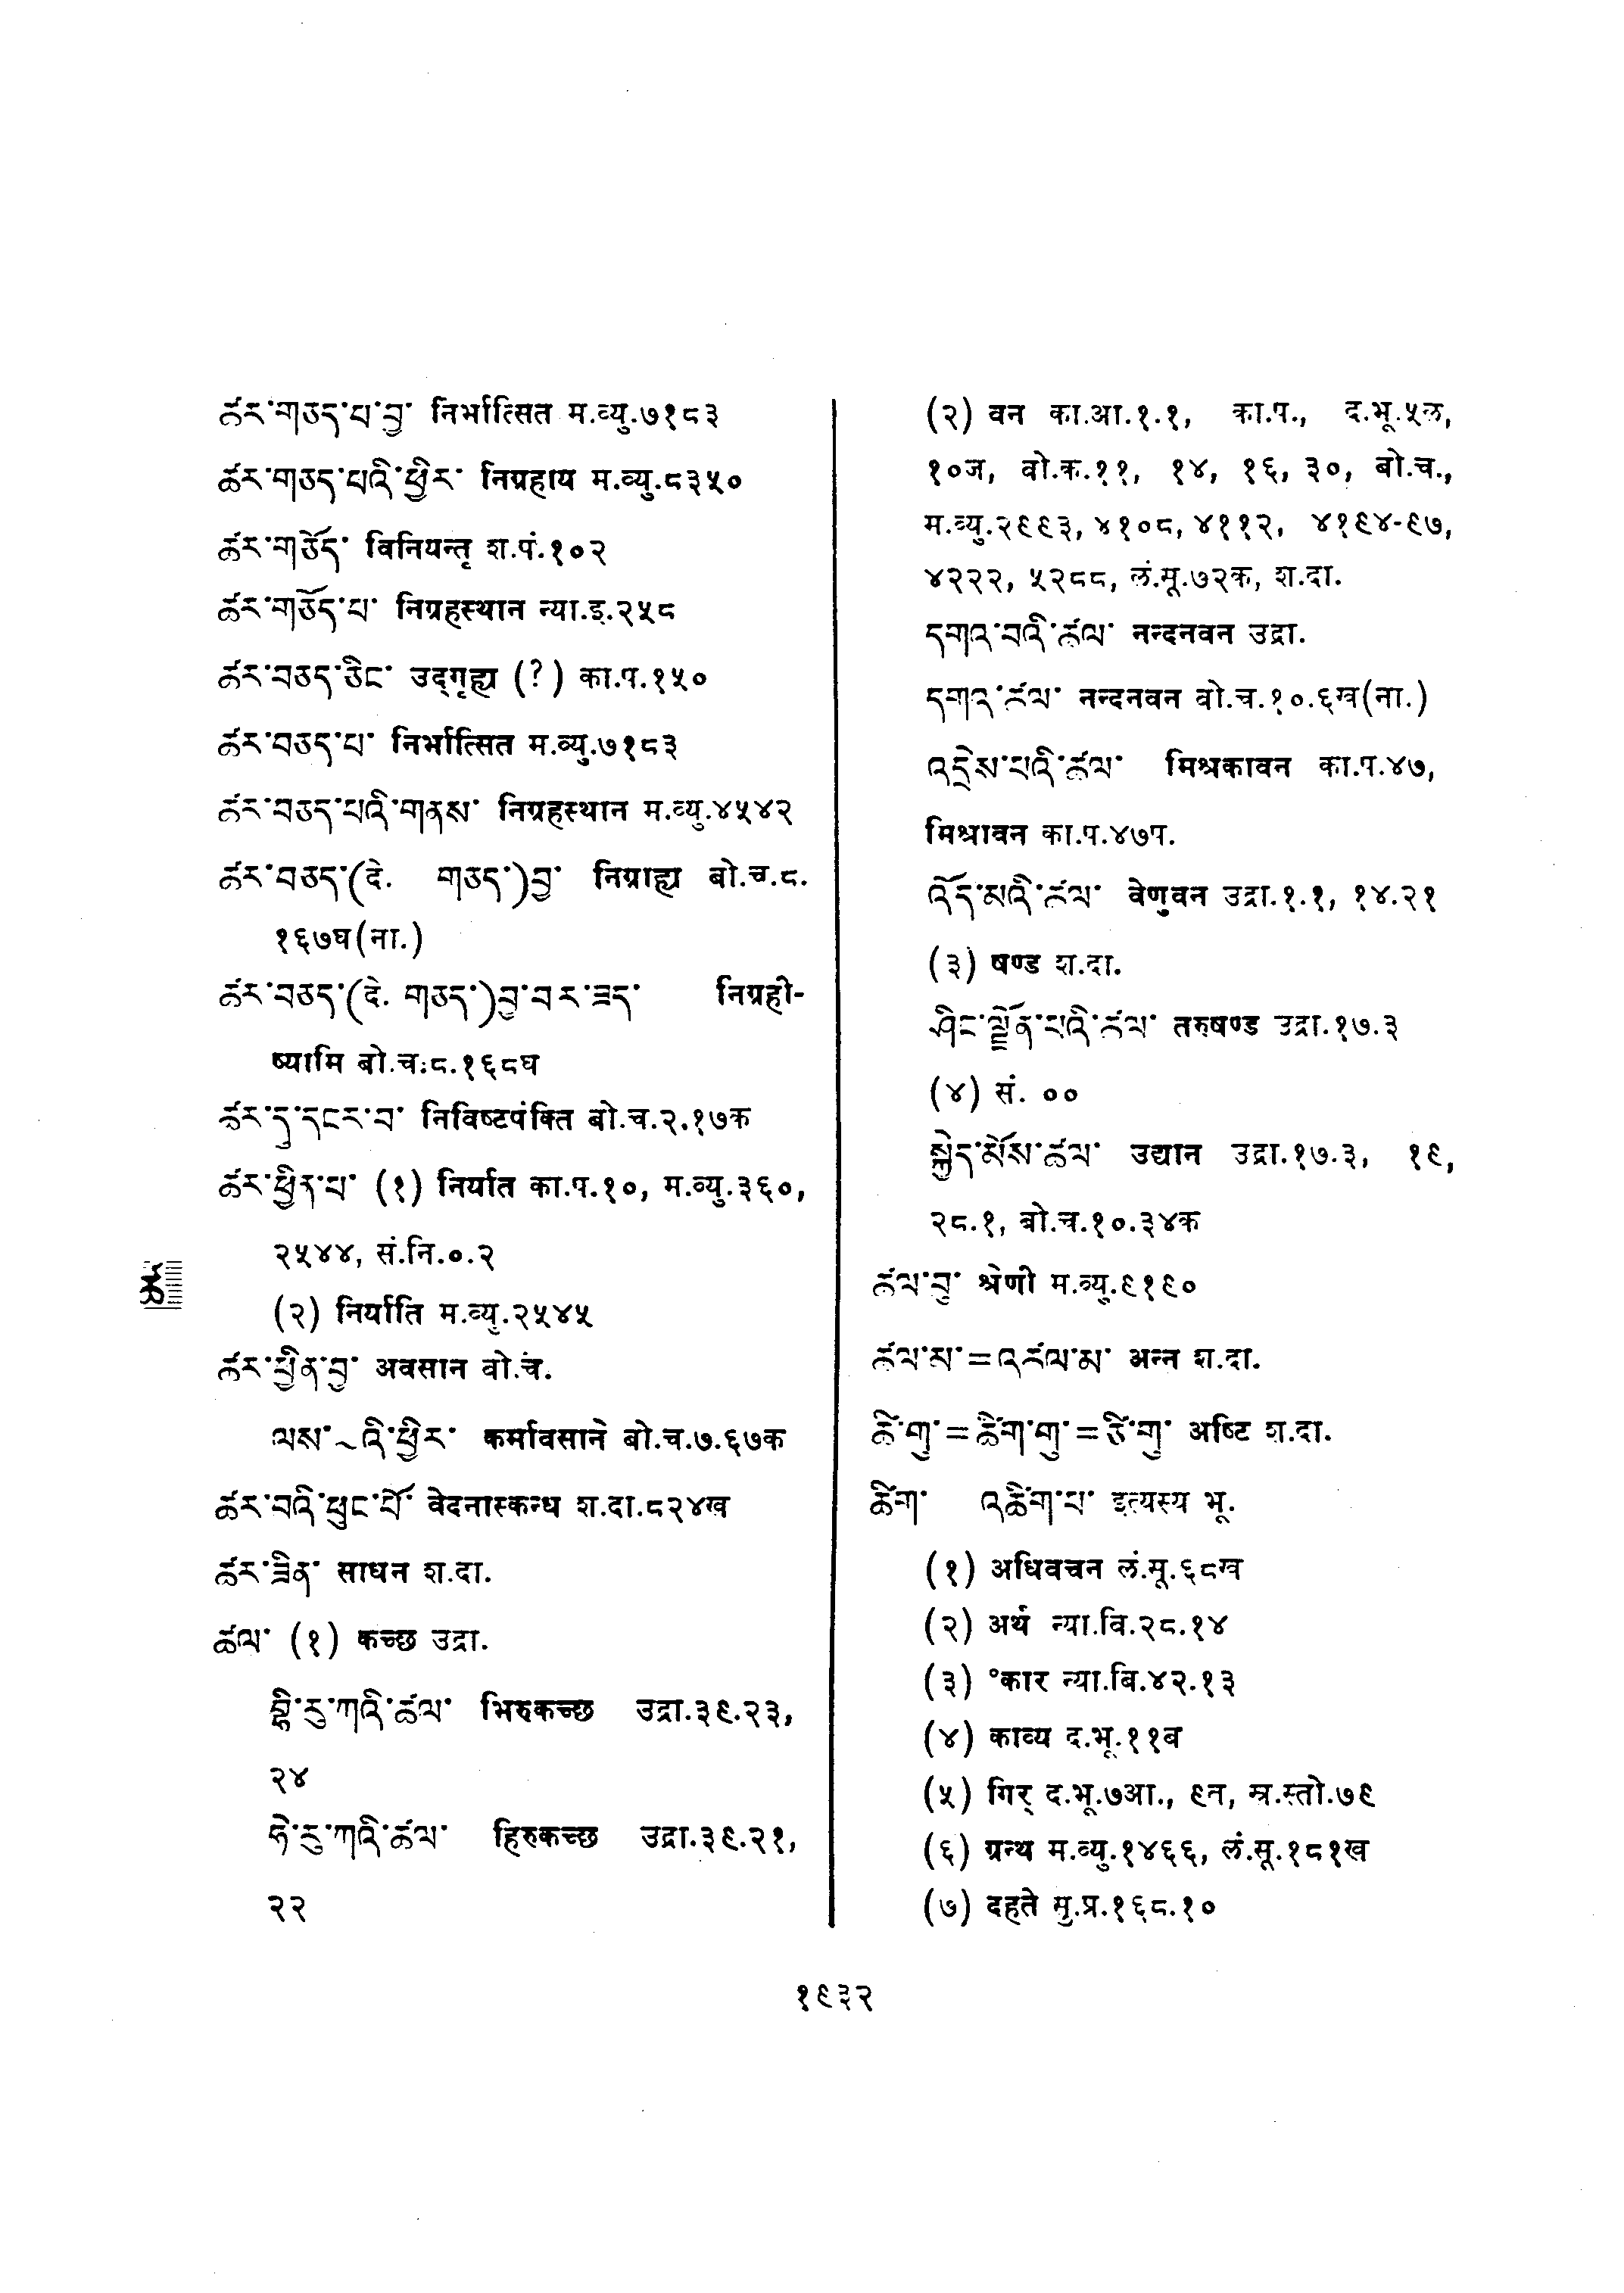 ཚར་གཅད་པ་བྱ་ निर्भात्सित म.व्यु.७१८३
ཚར་གཅད་པའི་ཕྱིར་ निग्रहाय म.व्यु.८३५०
ཚར་གཅོད་ विनियन्तृ श.पं.१०२
ཚར་གཅོད་པ་ निग्रहस्थान न्या.इ.२५८
ཚར་བཅད་ཅིང་ उद्गृह्य (?) का.प.१५०
ཚར་བཅད་པ་ निर्भात्सित म.व्यु.७१८३
ཚར་བཅད་པའི་གནས་ निग्रहस्थान म.व्यु.४५४२
ཚར་བཅད་(དེ. གཅད་)བྱ་ निग्राह्य बो.च.८.
१६७घ(ना.)
ཚར་བཅད་(དེ. གཅད་)བྱ་བར་ཟད་ निग्रही-
ष्यामि बो.च.८.१६८घ
ཚར་དུ་དངར་བ་ निविष्टपंक्ति बो.च.२.१७क
ཚར་ཕྱིན་པ་ (१) निर्यात का.प.१०, म.व्यु.३६०,
२५४४, सं.नि.०.२
(२) निर्याति म.व्यु.२५४५
ཚར་ཕྱིན་བྱ་ अवसान बो.च.
ལས་~འི་ཕྱིར་ कर्मावसाने बो.च.७.६७क
ཚར་བའི་ཕུང་པོ་ वेदनास्कन्ध श.दा.८२४ख
ཚར་ཟིན་ साधन श.दा.
ཚལ་ (१) कच्छ उद्रा.
བྷི་རུ་ཀའི་ཚལ་ भिरुकच्छ उद्रा.३९.२३,
२४
ཧེ་རུ་ཀའི་ཚལ་ हिरुकच्छ उद्रा.३९.२१,
२२
ཚ
(२) वन का.आ.१.१, का.प., द.भू.५ल,
१०ज, बो.क.११, १४, १६, ३०, बो.च.,
म.व्यु.२९९३, ४१०८, ४११२, ४१९४-९७,
४२२२, ५२८८, लं.मू.७२क, श.दा.
དགའ་བའི་ཚལ་ नन्दनवन उद्रा.
དགའ་ཚལ་ नन्दनवन बो.च.१०.६ख(ना.)
འདྲེས་པའི་ཚལ་ मिश्रकावन का.प.४७,
मिश्रावन का.प.४७प.
འོད་མའི་ཚལ་ वेणुवन उद्रा.१.१, १४.२१
(३) षण्ड श.दा.
ཤིང་ལྗོན་པའི་ཚལ་ तरुषण्ड उद्रा.१७.३
(४) सं. ००
སྐྱེད་མོས་ཚལ་ उद्यान उद्रा.१७.३, १९,
२८.१, बो.च.१०.३४क
ཚལ་བུ་ श्रेणी म.व्यु.९१९०
ཚལ་མ་=འཚལ་མ་ अन्न श.दा.
ཚི་གུ་=ཚིག་གུ་=ཙི་གུ་ अष्टि श.दा.
ཚིག་ འཚིག་པ་ इत्यस्य भू.
(१) अधिवचन लं.मू.६८ख
(२) अर्थ न्या.वि.२८.१४
(३) °कार न्या.बि.४२.१३
(४) काव्य द.भू.११ब
(५) गिर् द.भू.७आ., ९त, स्र.स्तो.७९
(६) ग्रन्थ म.व्यु.१४६६, लं.सू.१८१ख
(७) दहते मु.प्र.१६८.१०
१९३२